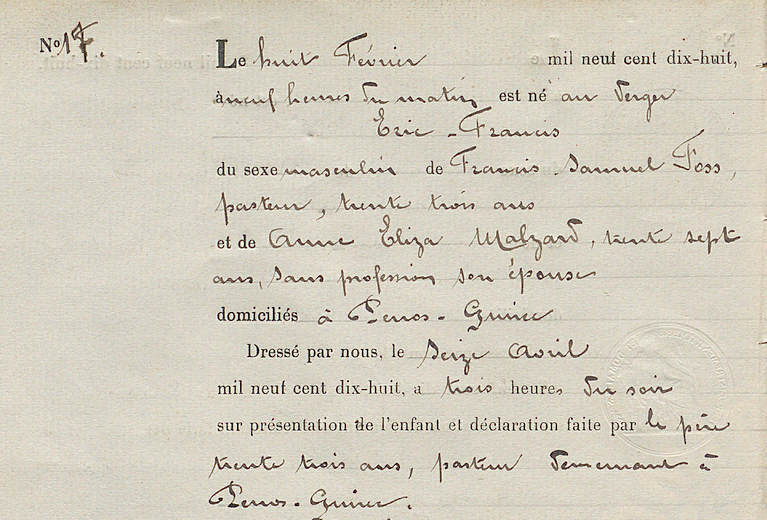 No 17.
Le huit Février mil neuf cent dix-huit,
à neuf heures du matin est né au Verger
Eric - Francis
du sexe masculin de Francis Samuel Foss,
pasteur, trente trois ans
et de Anne Eliza Malzard, trente sept
ans, sans profession son épouse
domiciliés à Perros-Guirec
Dressé par nous, le seize Avril
mil neuf cent dix-huit, a trois heures du soir
sur présentation de l'enfant et déclaration faite par le père
trente trois ans, pasteur demeurant à
Perros-Guirec.